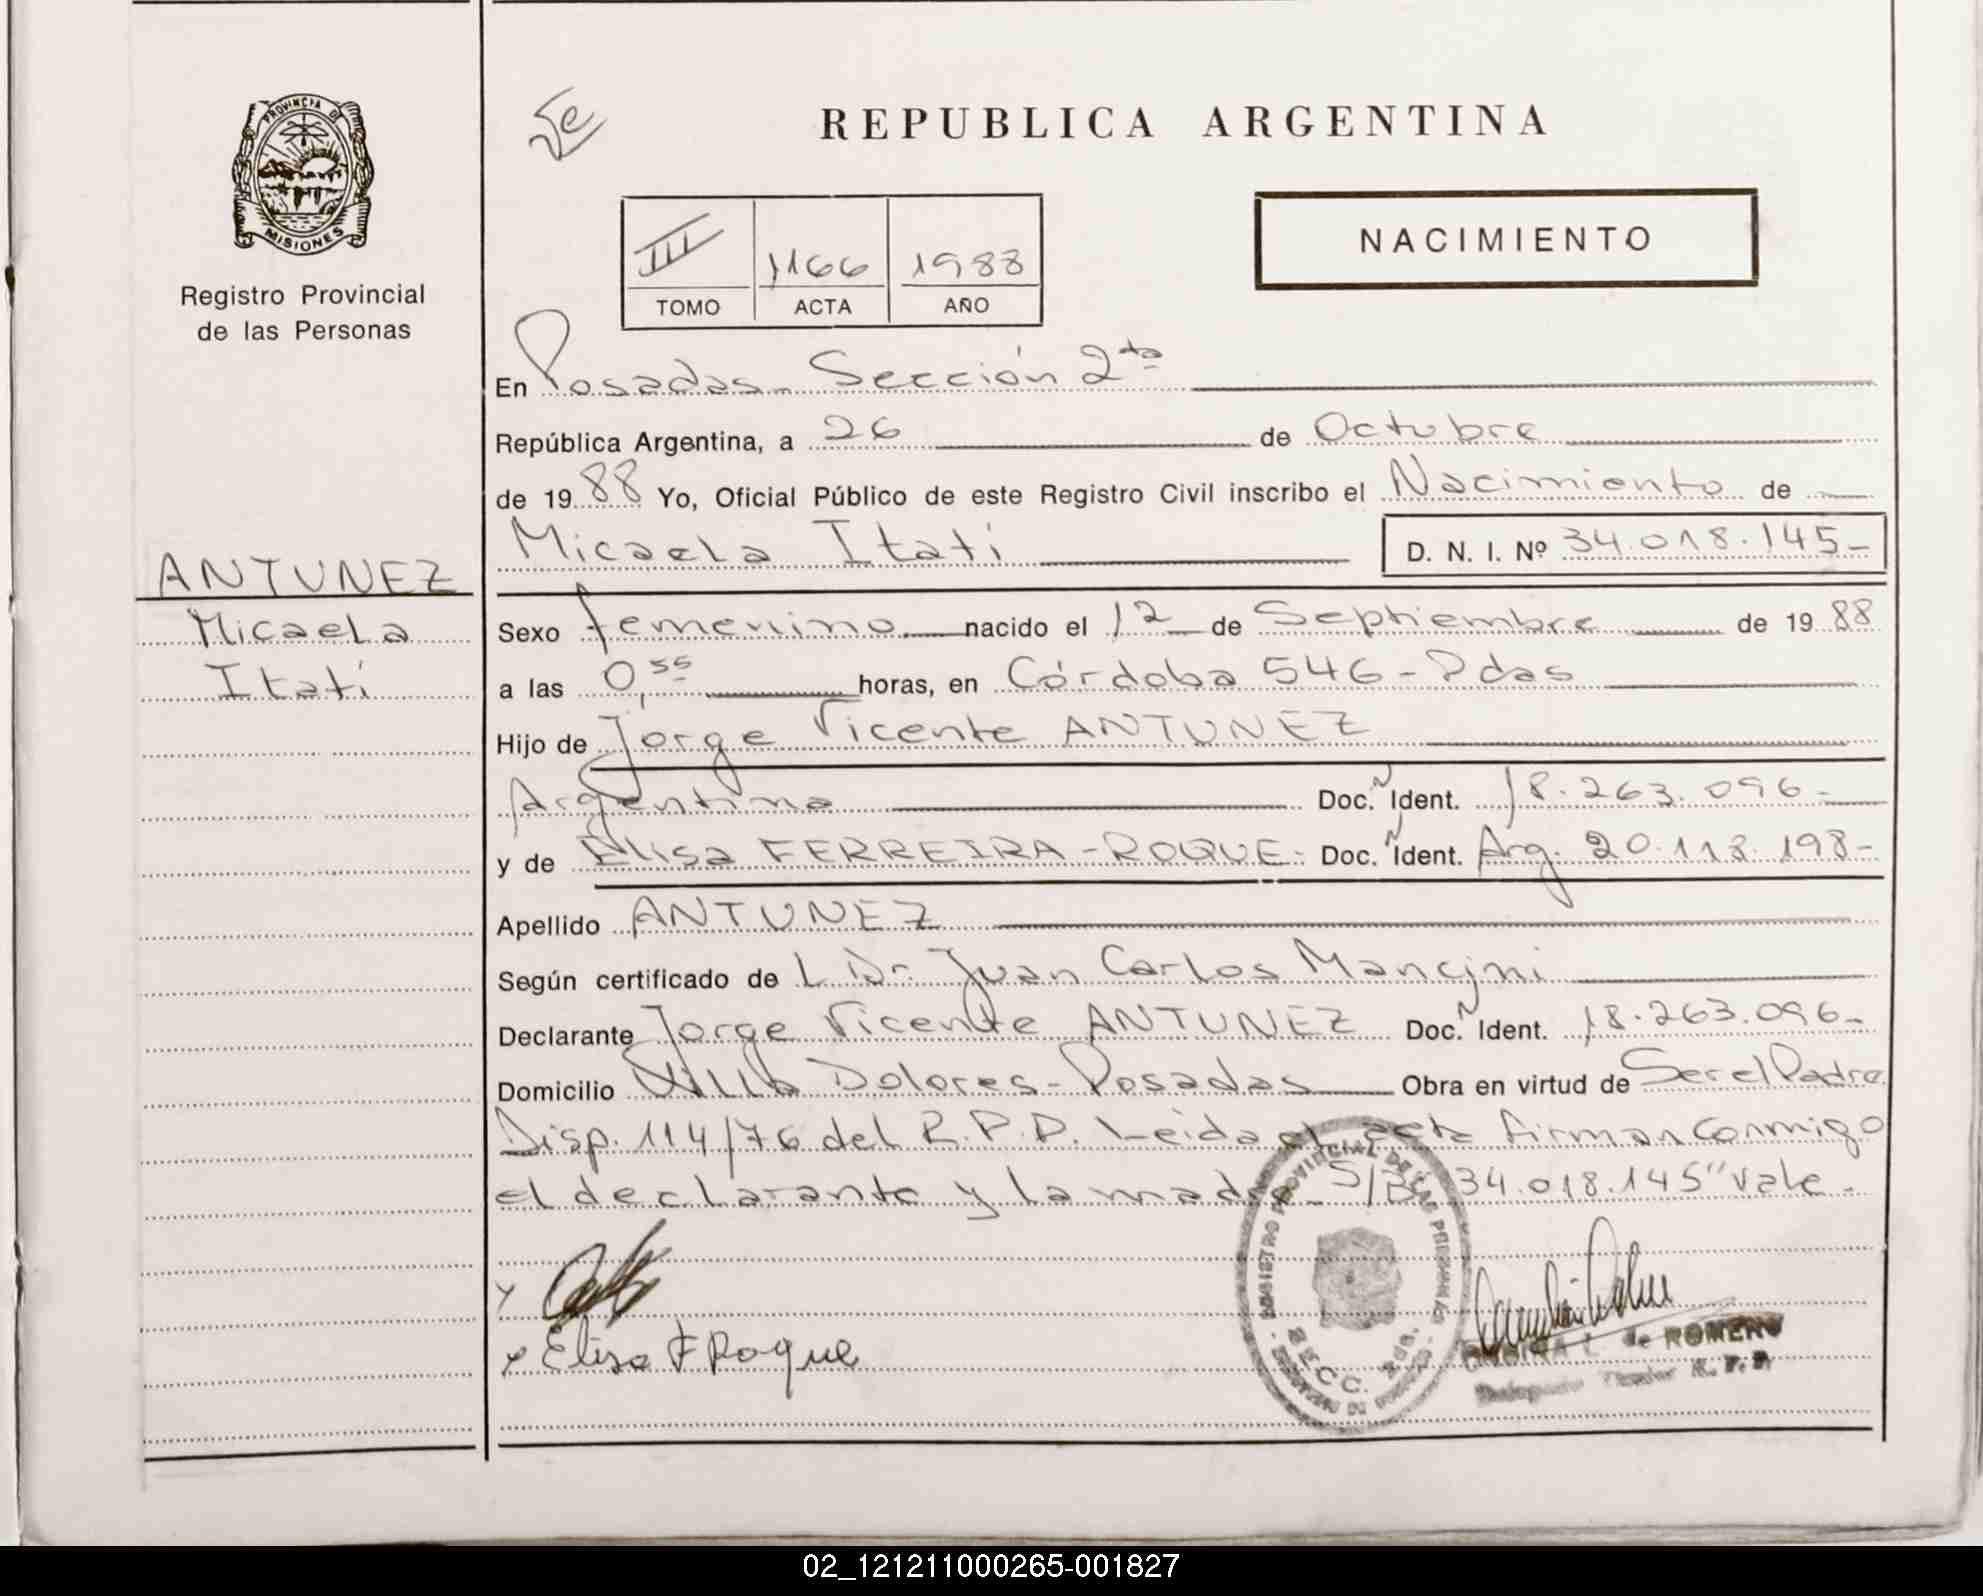 PROVINCIA DE
MISIONES
Registro Provincial
de las Personas
REPUBLICA ARGENTINA
NACIMIENTO
III 1166 1988
TOMO ACTA AÑO
En Posadas - Sección 2da
República Argentina, a 26 de Octubre
de 1988 Yo, Oficial Público de este Registro Civil inscribo el Nacimiento de
Micaela Itatí D. N. I. Nº 34.018.145-
ANTUNEZ
Micaela
Itatí
Sexo femenino nacido el 12 de Septiembre de 1988
a las 0,55 horas, en Córdoba 546 - Pdas
Hijo de Jorge Vicente ANTUNEZ
Argentino Doc. Ident. 18.263.096-
y de Elisa FERREIRA - ROQUE- Doc. Ident. Arg. 20.118.198-
Apellido ANTUNEZ
Según certificado de L Dr. Juan Carlos Mancini
Declarante Jorge Vicente ANTUNEZ Doc. Ident. 18.263.096-
Domicilio Villa Dolores - Posadas Obra en virtud de Ser el Padre
Disp. 114/76 del R.P.P. Leida el acta firman conmigo
el declarante y la madre - S/B 34.018.145" Vale -
Elisa F Roque
REGISTRO PROVINCIAL DE LAS PERSONAS
SECC. 2da.
de ROMERO
Titular R. P. P.
02_121211000265-001827